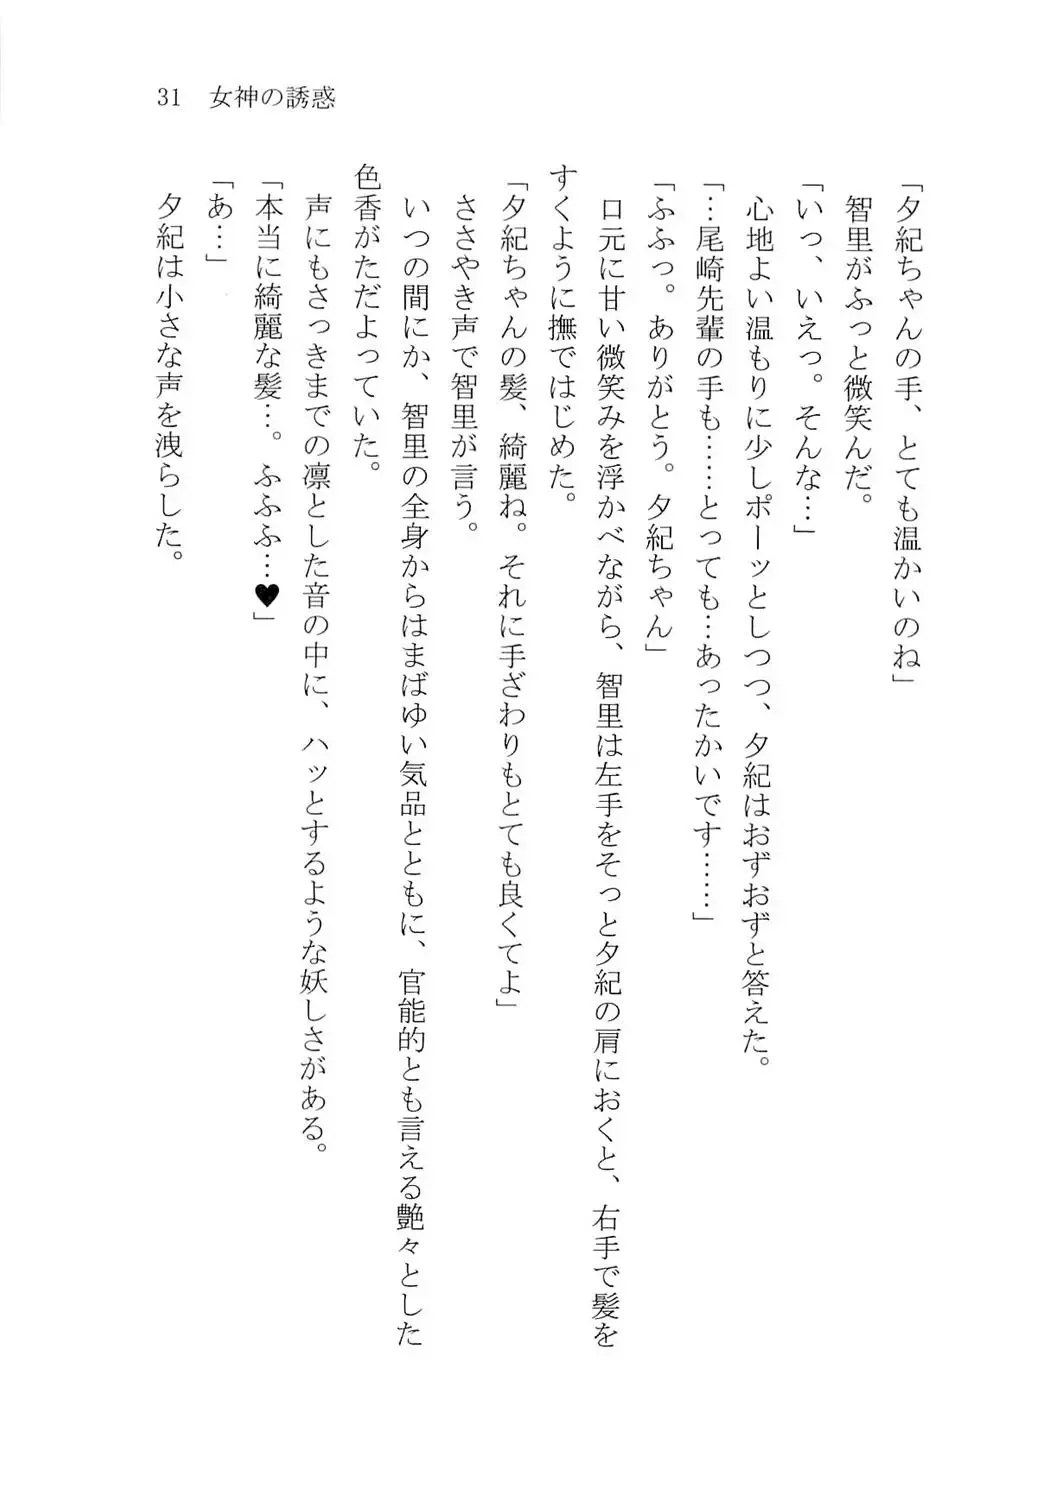 31 女神の誘惑
「夕紀ちゃんの手、とても温かいのね」
智里がふっと微笑んだ。
「いっ、いえっ。そんな…」
心地よい温もりに少しポーッとしつつ、夕紀はおずおずと答えた。
「…尾崎先輩の手も……とっても…あったかいです……」
「ふふっ。ありがとう。夕紀ちゃん」
口元に甘い微笑みを浮かべながら、智里は左手をそっと夕紀の肩におくと、右手で髪を
すくように撫ではじめた。
「夕紀ちゃんの髪、綺麗ね。それに手ざわりもとても良くてよ」
ささやき声で智里が言う。
いつの間にか、智里の全身からはまばゆい気品とともに、官能的とも言える艶々とした
色香がただよっていた。
声にもさっきまでの凛とした音の中に、ハッとするような妖しさがある。
「本当に綺麗な髪…。ふふふ…♥」
「あ…」
夕紀は小さな声を洩らした。